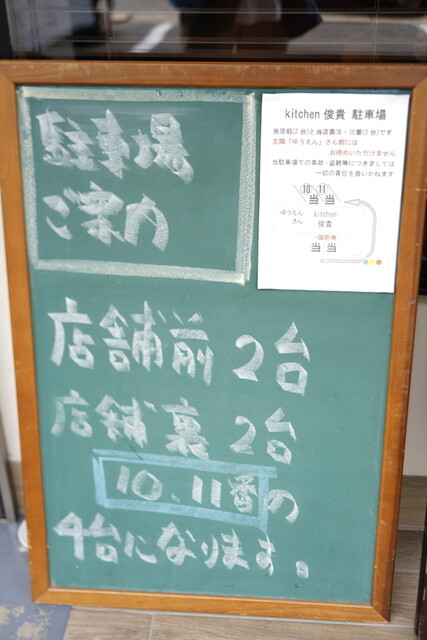 駐車場
ご案内
kitchen 俊貴 駐車場
当店前(2台)と当店裏10・11番(2台)です
左隣「ゆうえん」さん前には
お停めいただけません
当駐車場での事故・盗難等につきましては
一切の責任を負いかねます
10 11
当 当
ゆうえん
さん
kitchen
俊貴
当 当
店舗前 2台
店舗裏 2台
10、11番の
4台になります。